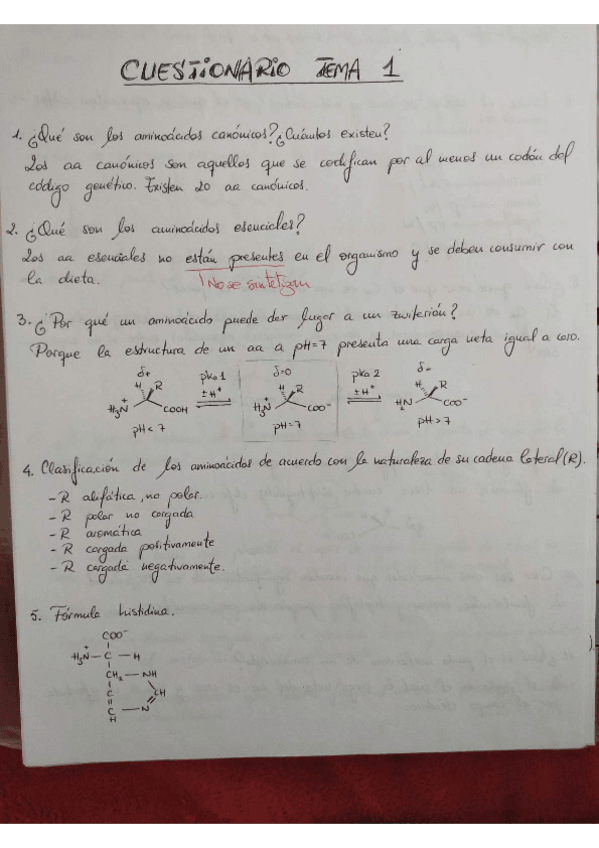 CUESTIONARIO TEMA 1
1. ¿Qué son los aminoácidos canónicos? ¿Cuántos existen?
Los aa canónicos son aquellos que se codifican por al menos un codón del
código genético. Existen 20 aa canónicos.
2. ¿Qué son los aminoácidos esenciales?
Los aa esenciales no están presentes en el organismo y se deben consumir con
la dieta. No se sintetizan
3. ¿Por qué un aminoácido puede dar lugar a un zwiterión?
Porque la estructura de un aa a pH=7 presenta una carga neta igual a cero.
δ+ pka 1 δ=0 pka 2 δ-
H R ±H⁺ H R ±H⁺ H R
H₃N⁺ COOH H₃N⁺ COO⁻ H₂N COO⁻
pH<7 pH=7 pH>7
4. Clasificación de los aminoácidos de acuerdo con la naturaleza de su cadena lateral (R).
- R alifática, no polar
- R polar no cargada
- R aromática
- R cargada positivamente
- R cargada negativamente.
5. Fórmula histidina.
COO⁻
H₃N⁺ — C — H
CH₂ — NH
C CH
C — N
H